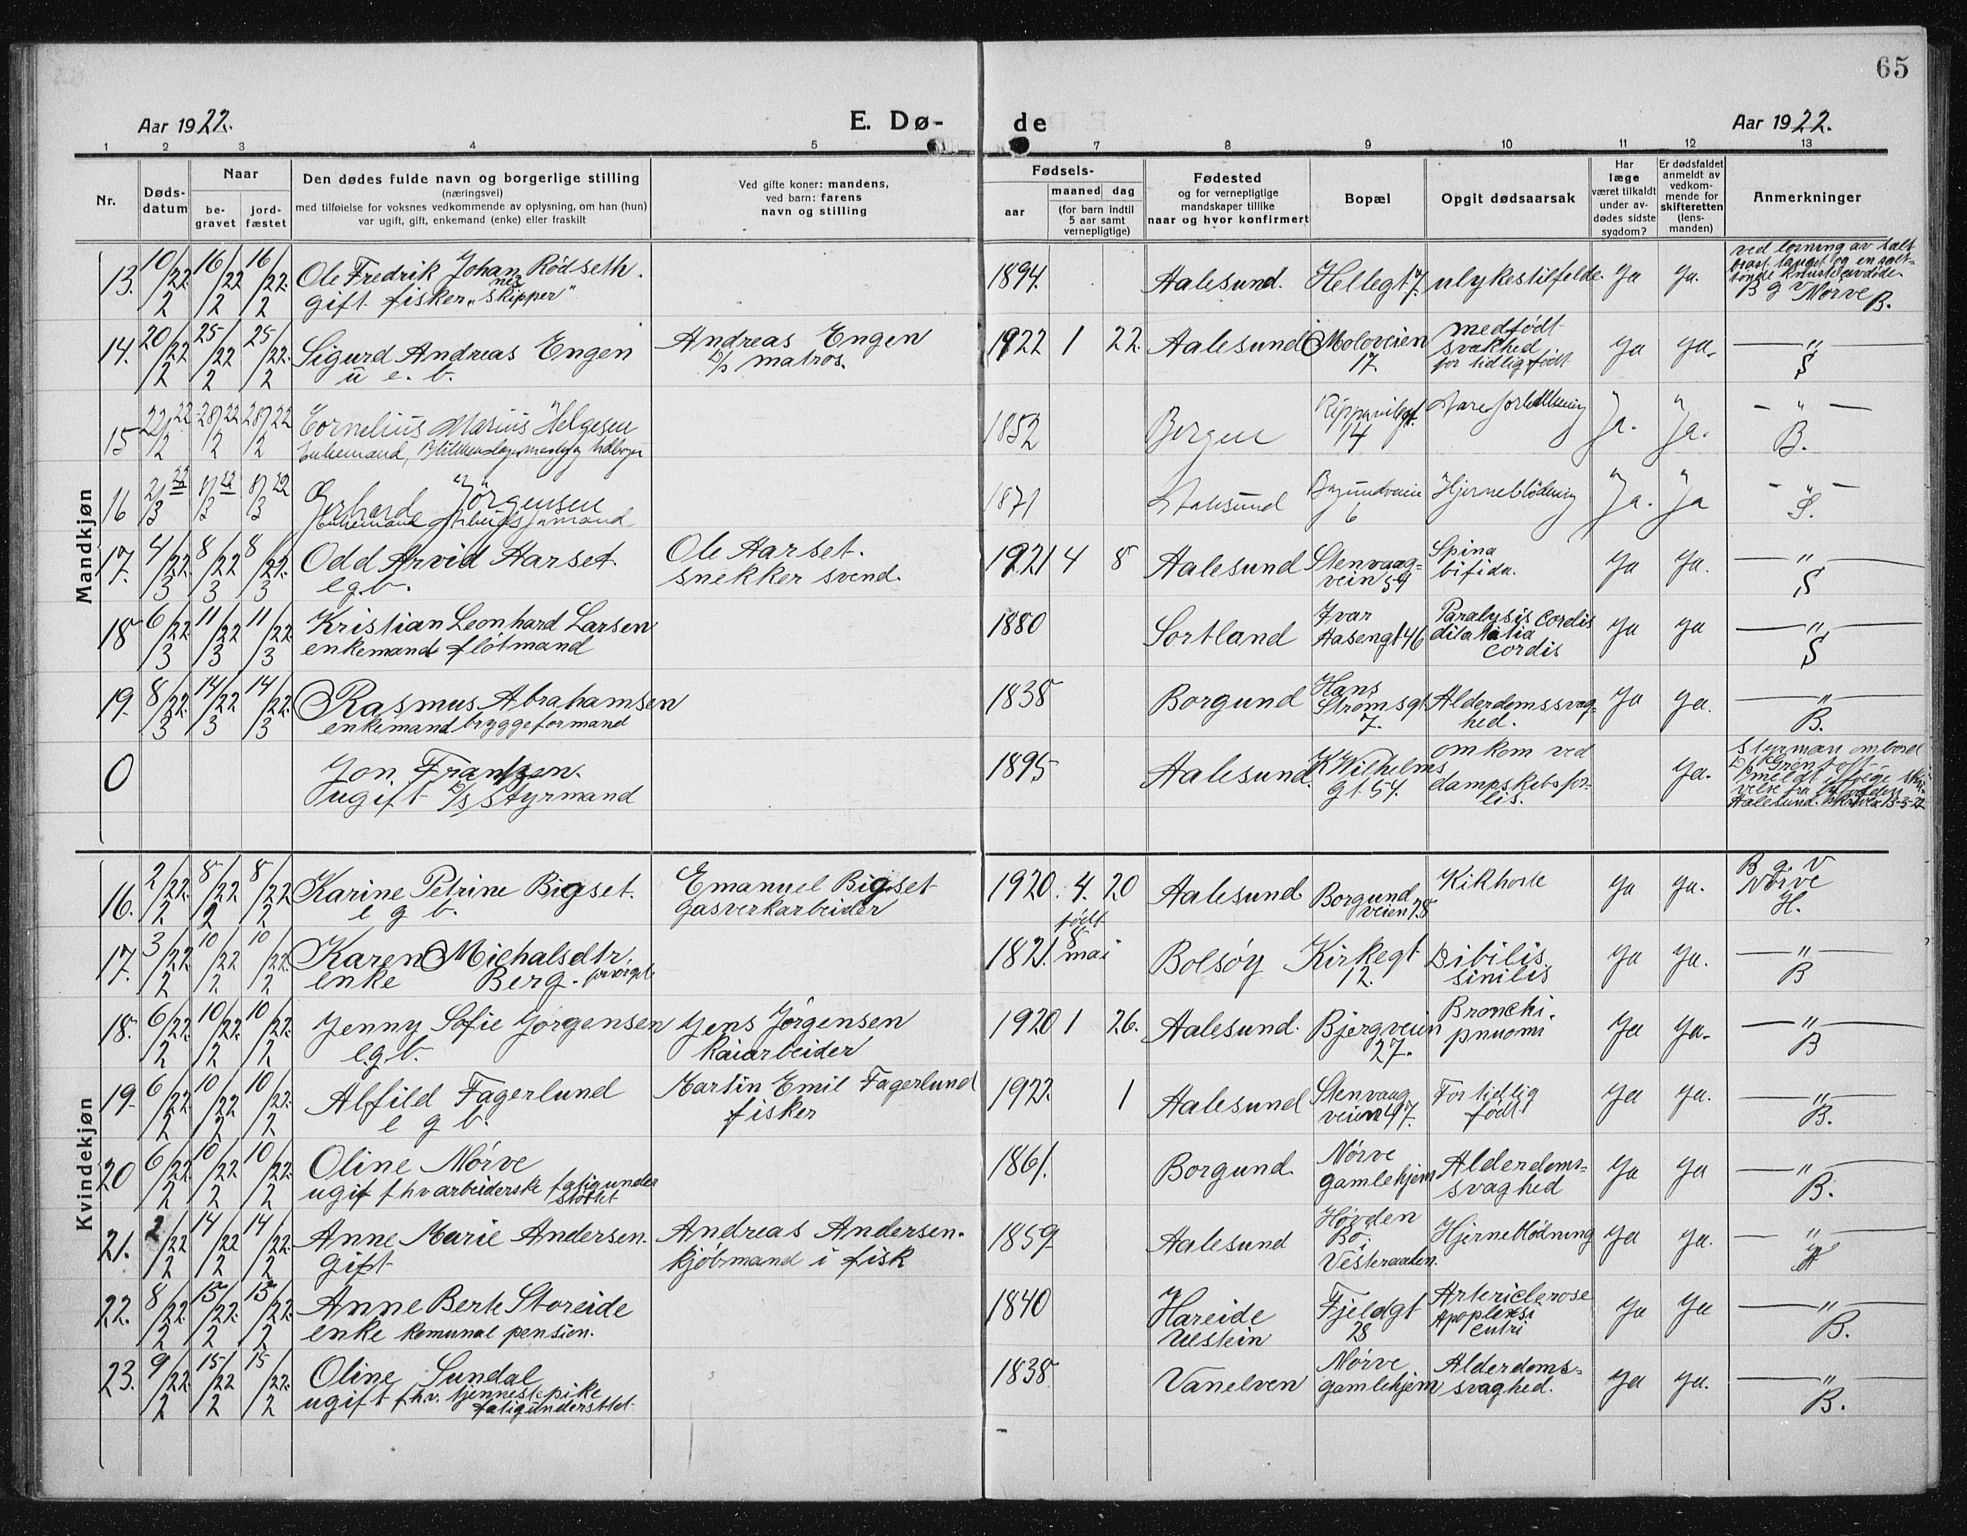 65
Aar 1922.
E. Dø- de
Aar 1922.
1 2 3 4 5 7 8 9 10 11 12 13
Nr.
Døds-
datum
Naar
be-
gravet
jord-
fæstet
Den dødes fulde navn og borgerlige stilling
(næringsvei)
med tilføielse for voksnes vedkommende av oplysning, om han (hun)
var ugift, gift, enkemand (enke) eller fraskilt
Ved gifte koner: mandens,
ved barn: farens
navn og stilling
Fødsels-
aar
maaned dag
(for barn indtil
5 aar samt
vernepligtige)
Fødested
og for vernepligtige
mandskaper tillike
naar og hvor konfirmert
Bopæl
Opgit dødsaarsak
Har
læge
været tilkaldt
under av-
dødes sidste
sygdom?
Er dødsfaldet
anmeldt av
vedkom-
mende for
skifteretten
(lens-
manden)
Anmerkninger
Mandkjøn
13. 10/2 22 16/2 22 16/2 22. Ole Fredrik Johan Rødseth.
gift fisker "skipper"
1894. Aalesund. Hellegt 7. ulykestilfelde. Ja Ja.
ved losning av salt
brast tauget og en salt-
tønde knuste avdøde.
B g v Nørve B.
14. 20/2 22 25/2 22 25/2 22. Sigurd Andreas Engen
u e. b.
Andreas Engen
D/s matros.
1922 1 22. Aalesund Moloveien
17.
medfødt
svakhed
for tidlig født
Ja Ja. — " —
S
15 22/2 22 28/2 22 28/2 22 Cornelius Marius Helgesen
Enkemand,
1852 Bergen
14
Ja. Ja. — " —
B.
16 2/3 22 8/3 22 8/3 22 Gerhard Jörgensen
Enkemand
1871 Aalesund
6
Hjerneblödning Ja. Ja — " —
S.
17. 4/3 22. 8/3 22 8/3 22. Odd Arvid Aarset.
e g b.
Ole Aarset.
snekker svend.
1921 4 8 Aalesund Stenvaag-
vein 54
Spina
bifida.
Ja Ja. — " —
S
18 6/3 22 11/3 22 11/3 22 Kristian Leonhard Larsen
enkemand fløtmand
1880 Sortland Ivar
Aasengt 46
Paralysis cordis
dilatatia
cordis
Ja Ja — " —
S
19. 8/3 22. 14/3 22 14/3 22. Rasmus Abrahamsen
enkemand bryggeformand
1838 Borgund Hans
Strømsgt
7.
Alderdomssvag-
hed.
Ja Ja. — " —
B.
0 Jon. Frantzen.
ugift D/s Styrmand
1895 Aalesund. K Wilhelms
gt. 54.
omkom ved
dampskibsfor-
lis.
Ja.
Styrman ombord
Kvindekjøn
16. 2/2 22. 8/2 22 8/2 22 Karine Petrine Bigset.
e g b.
Emanuel Bigset
gasverkarbeider
1920. 4. 20 Aalesund. Borgund
veien 78
Kikhoste Ja Ja.
B g V
Nørve
H.
17. 3/2 22. 10/2 22 10/2 22. Karen Michalsdtr.
enke Berg. forsørget
1821. født
8
mai
Bolsøy Kirkegt
12.
Dibilis
sinilis
Ja Ja. — " —
B
18. 6/2 22. 10/2 22. 10/2 22. Jenny Sofie Jørgensen
e.g.b.
Jens Jørgensen
kaiarbeider
1920 1 26. Aalesund. Bjergveien
27.
Bronchi.
pnuomi
Ja Ja. — " —
B
19. 6/2 22. 10/2 22 10/2 22. Alfild Fagerlund
e g b.
Martin Emil Fagerlund
fisker
1922. 1 Aalesund Stenvaag
veien 97.
For tidlig
født
Ja Ja. — " —
B.
20 6/2 22. 10/2 22 10/2 22. Oline Nørve
ugift fhv arbeiderske fatigunder
støttet
1861. Borgund. Nørve
gamlehjem
Alderdoms-
svaghed
Ja Ja — " —
B.
21. 2/2 22 14/2 22 14/2 22. Anne Marie Andersen.
gift
Andreas Andersen.
kjøbmand i fisk
1859 Aalesund Høvden
Bø i
Vesteraalen.
Hjerneblødning Ja Ja. — " —
22. 8/2 22. 15/2 22. 15/2 22. Anne Berte Storeide
enke komunal pension.
1840 Hareide
Ulstein
Fjeldgt
28
Artericlerose
Apoplexsi
centri
Ja Ja — " —
B.
23. 9/2 22. 15/2 22 15/2 22. Oline Sundal
ugift f.h.v. tjennestepike
fatigunderstttet.
1838 Vanelven Nørve
gamlehjem
Alderdoms-
svaghed.
Ja Ja. — " —
B.